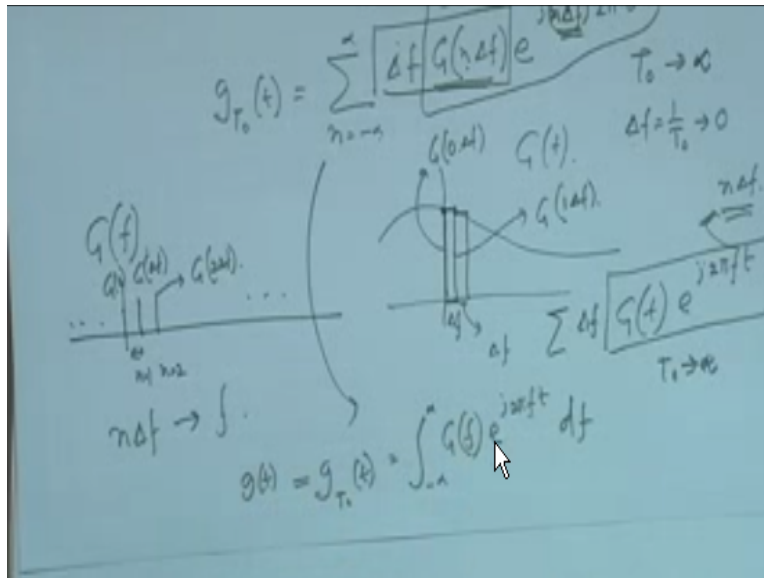 g_{T₀}(t) = ∑_{n=-∝}^{∝} Δf G(nΔf) e^{j(nΔf)2π
T₀ → ∝
Δf = 1/T₀ → 0
G(0Δf) G(f).
G(1Δf).
nΔf.
G(f)
G(Δf) G(2Δf).
.. ...
n=1 n=2
Δf Δf
∑ Δf G(f) e^{j2πft}
T₀ → ∝
nΔf → f.
g(t) = g_{T₀}(t) = ∫_{-∝}^{∝} G(f) e^{j2πft} df